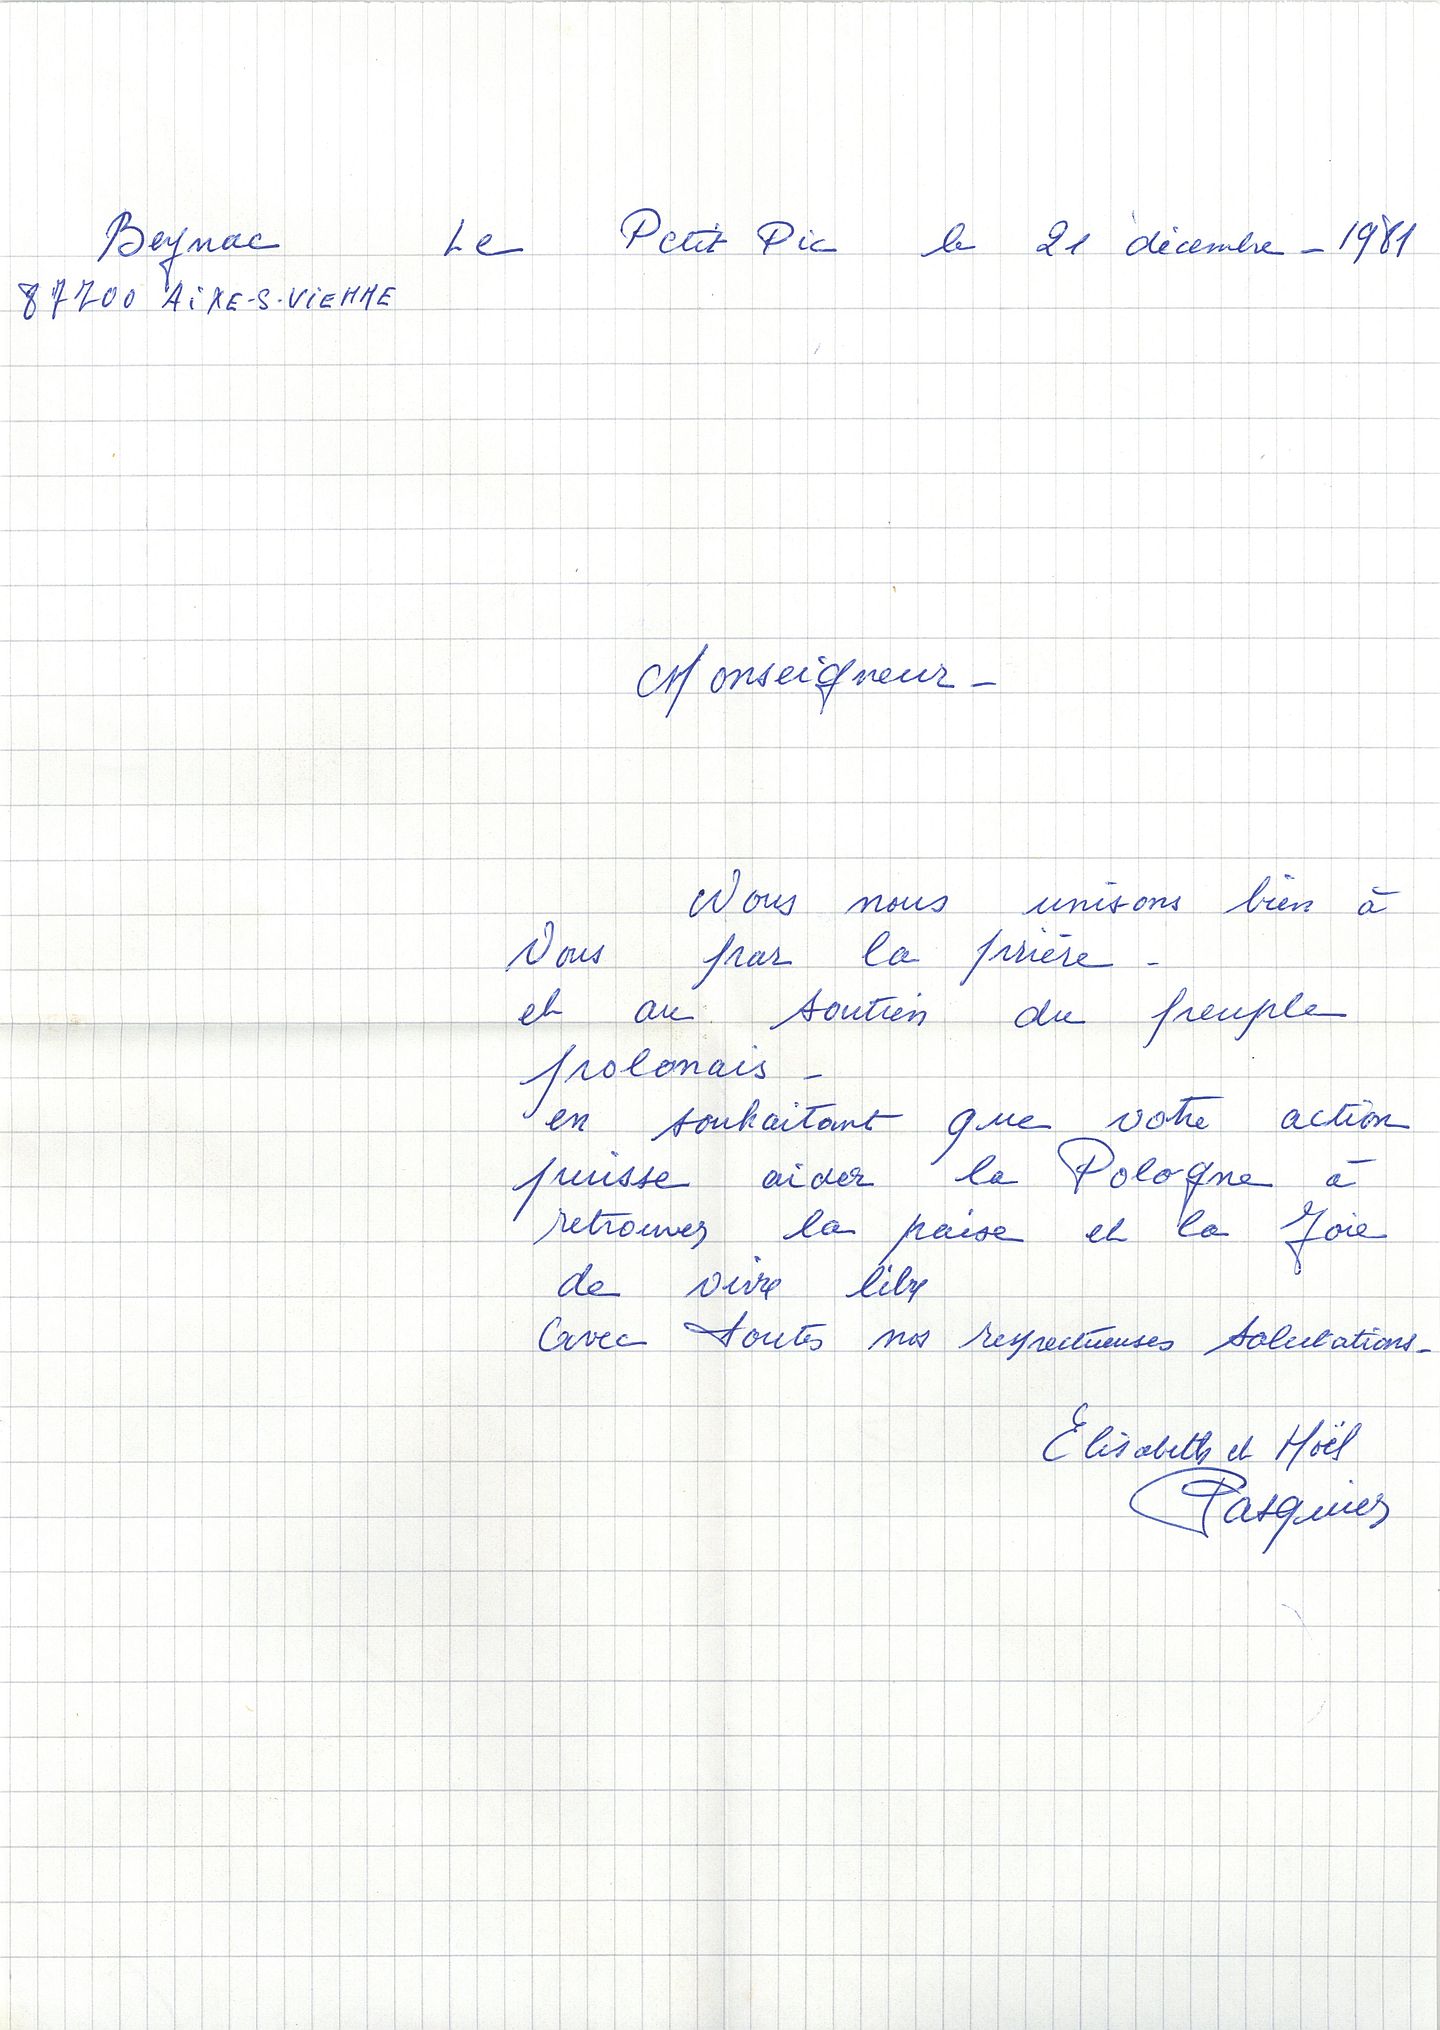 Beynac Le Petit Pic le 21 décembre - 1981
87700 AiXE-S-ViENNE
Monseigneur -
Nous nous unisons bien à
Vous par la prière -
et au soutien du peuple
polonais -
en souhaitant que votre action
puisse aider la Pologne à
retrouver la paise et la Joie
de vivre libre
Avec toutes nos respectueuses salutations -
Elisabeth et Noël
Pasquier